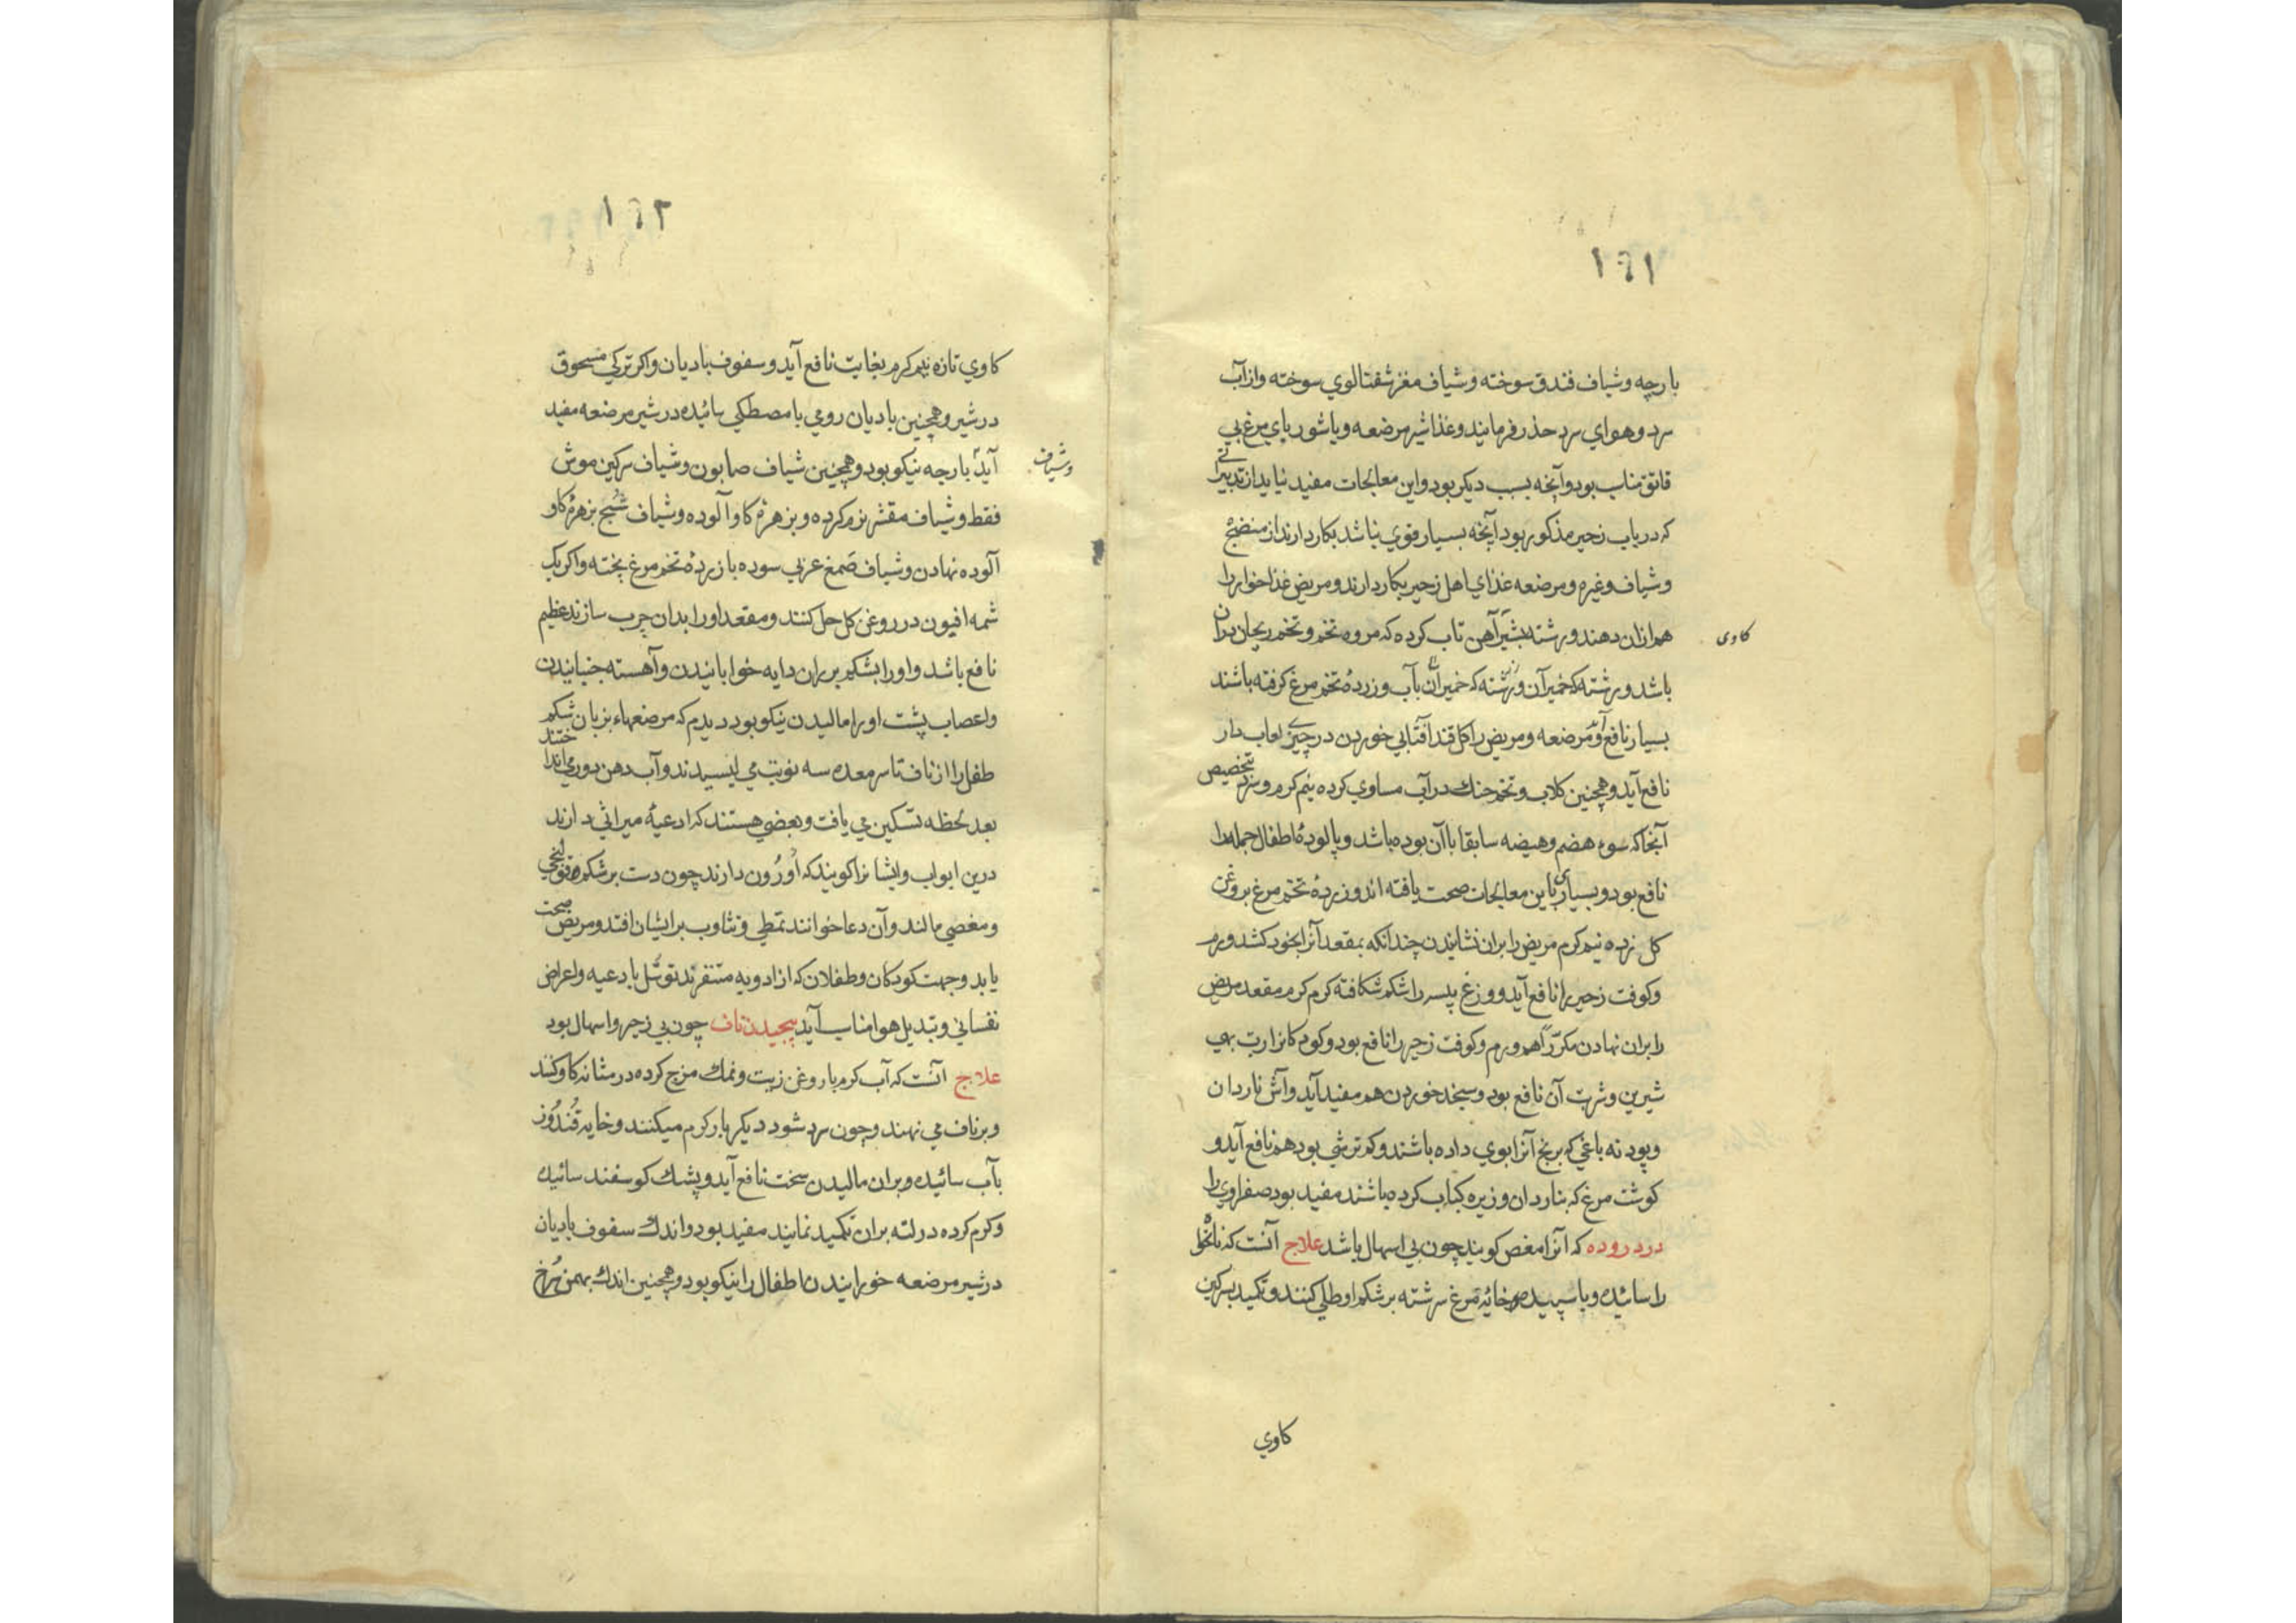 ۱۶۱
بارچه وشیاف فندق سوخته وشیاف مغز شفتالوي سوخته واز آب
سرد وهواي سرد حذر فرمایند وغذا شیر مرضعه ویا شورباي مرغ بي
قاتق مناسب بود وآنچه بسبب دیکر بود واین معالجات مفید نیاید از تدبیراتے
که در باب زحیر مذکور بود آنچه بسیار قوي نباشد بکار دارند از منضج
وشیاف وغیره ومرضعه غذاي اهل زحیر بکار دارند ومریض غذا خوار را
هم ازان دهند ورشته بشیر آهن تاب کرده که مروه تخم وتخم ریحان بران
کاوی
باشد ورشته که خمیر آن ورشته که خمیر آن بآب وزردهٔ تخم مرغ کرفته باشند
بسیار نافع آید ومرضعه ومریض را کل قند آفتابي خوردن در چیزے لعاب دار
نافع آید وهمچنین کلاب وتخم خنك در آب مساوي کرده نیم کرم وسرد بتخصیص
آنجا که سوء هضم وهیضه سابقا باآن بوده باشد وپالودهٔ اطفال جمله را
نافع بود وبسیاری باین معالجات صحت یافته اند وزردهٔ تخم مرغ بروغن
کل زده نیم کرم مریض را بران نشایندن چندانکه بمقعد آنرا بخود کشد ورم
وکوفت زحیر را نافع آید ووزغ پلسه را شکم شکافته کرم کرم مقعد مریض
را بران نهادن مکرّراً هم ورم وکوفت زحیر را نافع بود وکودکانرا رب بهي
شیرین وشربت آن نافع بود وسنجد خوردن هم مفید آید وآش ناردان
وپودنه باغي که برنج آنرا بوي داده باشند وکم ترشي بود هم نافع آید و
کوشت مرغ که بناردان وزیره کباب کرده باشند مفید بود صفراوي را
درد روده که آنرا مغص کویند چون بي اسهال باشد علاج آنست که نانخواه
را سائیده وبا سپیده خائهٔ مرغ سرشته بر شکم او طلي کنند وتکمید بسرکین
کاوي
۱۶۲
کاوي تازه نیم کرم بغایت نافع آید وسفوف بادیان واکر ترکي مسحوق
در شیر وهمچنین بادیان رومي با مصطکي سائیده در شیر مرضعه مفید
آید بارچه نیکو بود وهمچنین شیاف صابون وشیاف سرکین موش
وشیاف
فقط وشیاف مقشر نرم کرده وبزهرهٔ کاو آلوده وشیاف شبج بزهرهٔ کاو
آلوده نهادن وشیاف صمغ عربي سوده با زردهٔ تخم مرغ پخته واکر یك
شمه افیون در روغن کل حل کنند ومقعد او را بدان چرب سازند عظیم
نافع باشد واو را بشکم بر ران دایه خوابانیدن وآهسته جنبانیدن
واعصاب پشت او را مالیدن نیکو بود دیدم که مرضعهاء بزبان شکم
طفل را از ناف تا سر معده سه نوبت مي لیسیدند وآب دهن دور مي انداختند
بعد لحظه تسکین مي یافت وبعضي هستند که ادعیهٔ میراثي دارند
درین ابواب وایشانرا کویند که اوزُون دارند چون دست بر شکم قولنجي
ومغصي مالند وآن دعا خوانند تمطي وتثاوب بر ایشان افتد ومریض صحت
یابد وجهت کودکان وطفلان که از ادویه متنفرند توسّل بادعیه واعراض
نفساني وتبدیل هوا مناسب آید پیچیدن ناف چون بي زحیر واسهال بود
علاج آنست که آب کرم با روغن زیت ونمك مزج کرده در مثانه کاو کنند
وبر ناف مي نهند وچون سرد شود دیکر بار کرم میکنند وخایه قُندُوز
بآب سائیده وبران مالیدن سخت نافع آید وپشك کوسفند سائیده
وکرم کرده در لته بران تکمید نمایند مفید بود واندك سفوف بادیان
در شیر مرضعه خورانیدن اطفال را نیکو بود وهمچنین اندك بهمن سُرخ